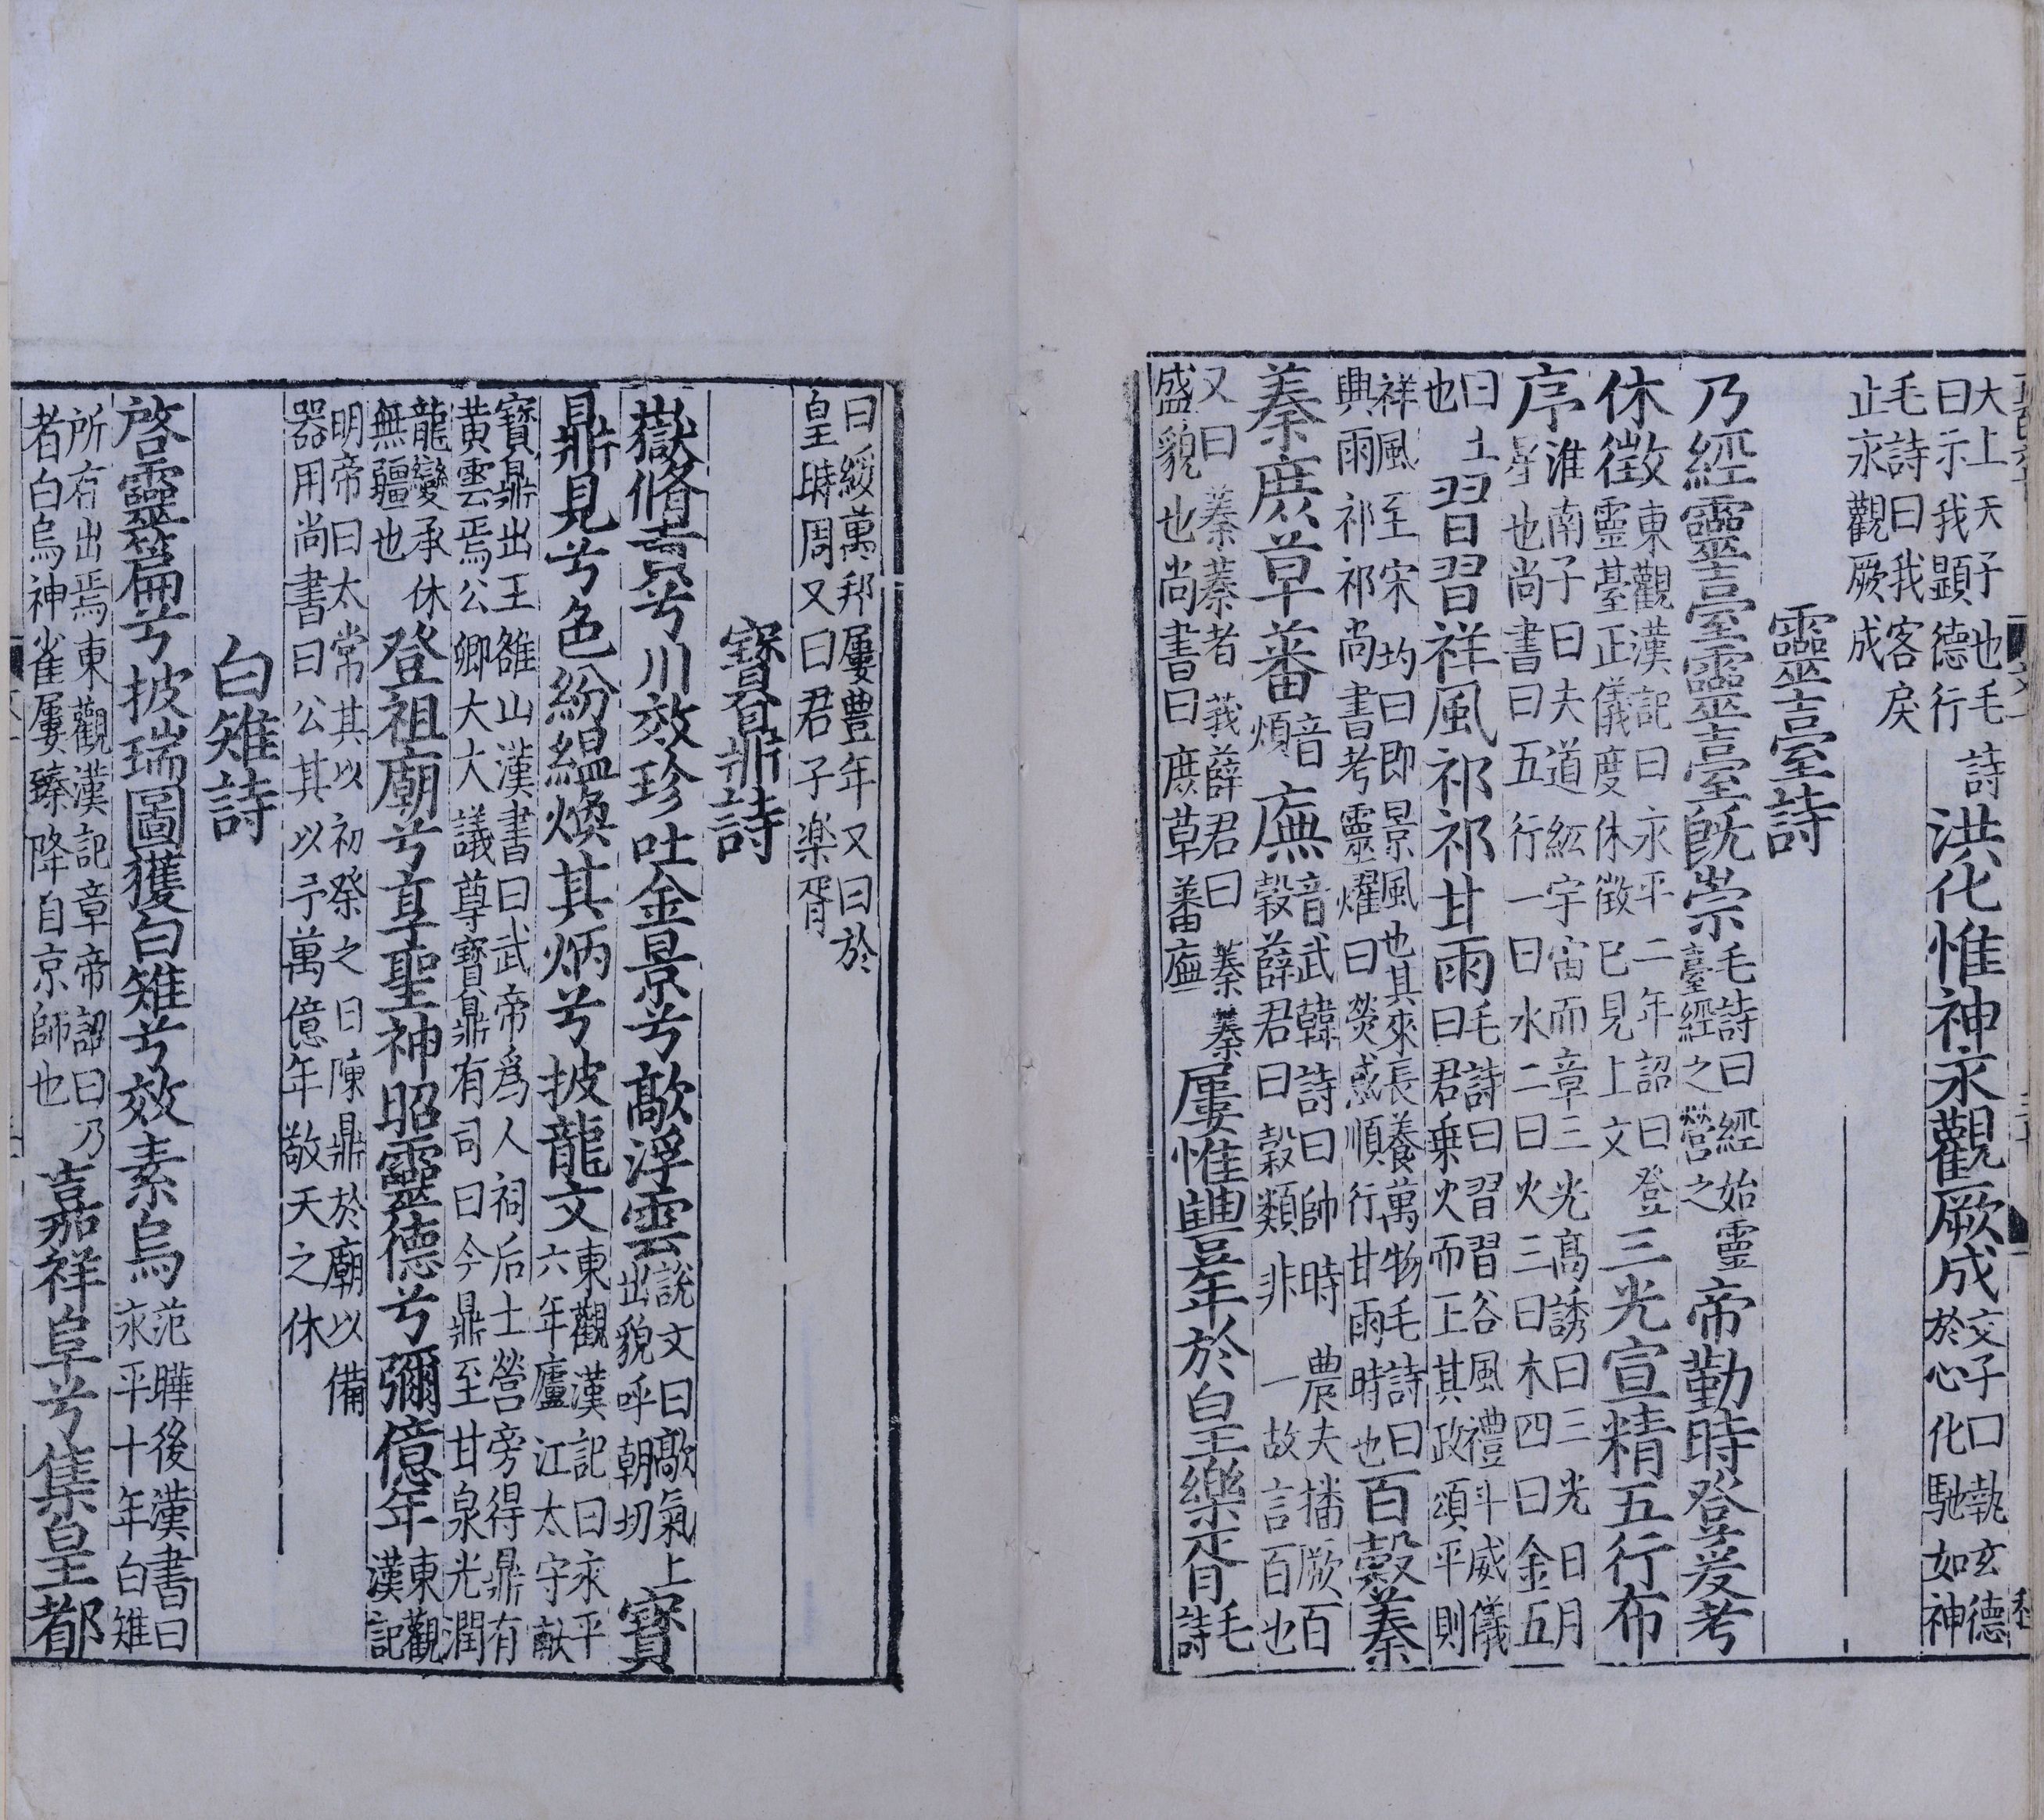 大上天子也毛詩曰示我顯德行洪化惟神永觀厥成文子曰執玄德於心化馳如神
毛詩曰我客戾止永觀厥成
靈臺詩
乃經靈臺靈臺旣崇毛詩曰經始靈臺經之營之帝勤時登爰考
休徵東觀漢記曰永平二年詔曰登靈臺正儀度休徵已見上文三光宣精五行布
序淮南子曰夫道紘宇宙而章三光高誘曰三光日月星也尚書曰五行一曰水二曰火三曰木四曰金五
曰土也習習祥風祁祁甘雨毛詩曰習習谷風禮斗威儀曰君乗火而正其政頌平則
祥風至宋均曰即景風也其來長養萬物毛詩曰興雨祁祁尚書考靈耀曰熒惑順行甘雨時也百穀蓁
蓁庶草蕃音煩廡音武韓詩曰帥時農夫播厥百穀薛君曰穀類非一故言百也
又曰蓁蓁者莪薛君曰蓁蓁盛貌也尚書曰庶草蕃廡屢惟豐年於皇樂胥毛詩
曰綏萬邦屢豊年又曰於皇時周又曰君子楽胥
寶鼎詩
嶽脩貢兮川效珍吐金景兮歊浮雲說文曰歊氣上出貌呼朝切寶
鼎見兮色紛縕煥其炳兮披龍文東觀漢記曰永平六年廬江太守献
寶鼎出王雒山漢書曰武帝爲人祠后土營旁得鼎有黄雲焉公卿大大議尊寶鼎有司曰今鼎至甘泉光潤
龍變承休無疆也登祖廟兮享聖神昭靈德兮彌億年東觀漢記
明帝曰太常其以初祭之日陳鼎於廟以備器用尚書曰公其以予萬億年敬天之休
白雉詩
啓靈篇兮披瑞圖獲白雉兮效素烏范曄後漢書曰永平十年白雉
所有出焉東觀漢記章帝詔曰乃者白烏神雀屢臻降自京師也嘉祥阜兮集皇都